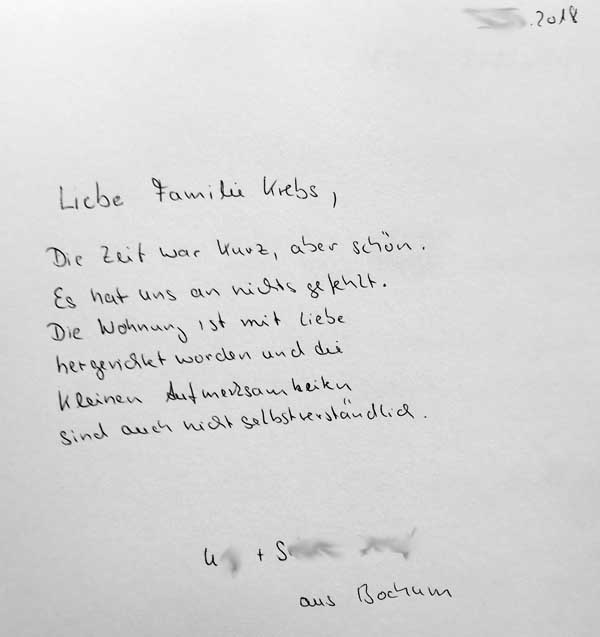 .2018
Liebe Familie Krebs,
Die Zeit war kurz, aber schön.
Es hat uns an nichts gefehlt.
Die Wohnung ist mit Liebe
hergerichtet worden und die
kleinen Aufmerksamkeiten
sind auch nicht selbstverständlich.
U + S
aus Bochum